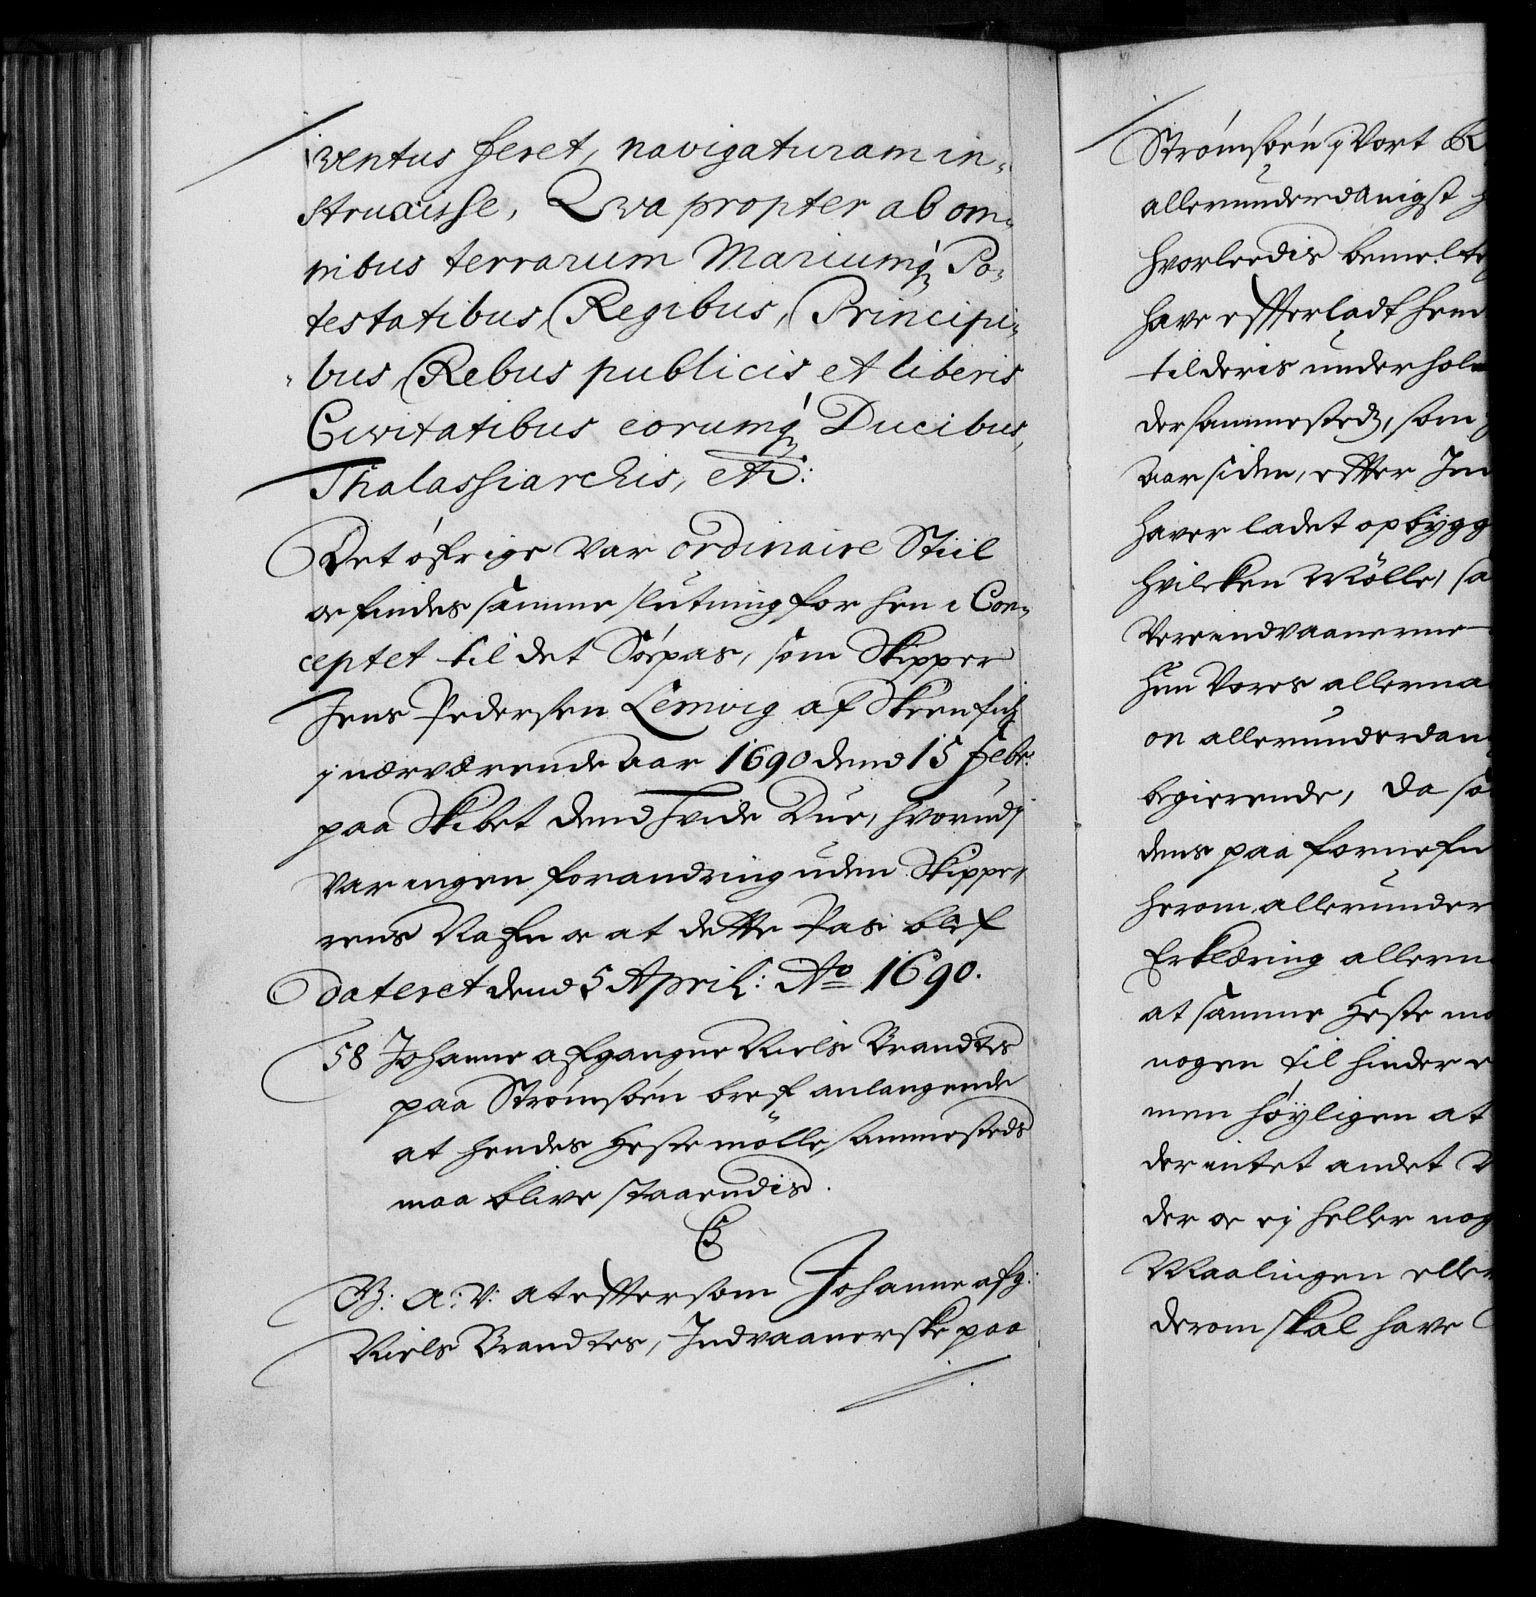 ventus feret, navigaturam in-
struxisse, Qva propter ab om-
nibus terrarum Mariumq Po-
testatibus, Regibus, Principi-
bus, Rebus publicis et liberis
Civitatibus eorumq Ducibus,
Thalassiarchis, etc:
Det öfrige var ordinaire Stiil
oc findes samme slutning for hen i Con-
ceptet til det Söepas, som Skipper
Jens Pedersen Lemvig af Skeen fich
i nærværende Aar 1690 dend 15 Febr:
paa Skibet dend hvide Due, hvorudj
var ingen forandring uden Skippe-
rens Nafn oc at dette Pas blef
dateret dend 5 April: Ao 1690.
58 Johanne afgangne Niels Brandtes
paa Strömsöen bref anlangende
at hendes Hestemölle sammesteds
maa blive staaendis.
C5
G: A: V: at eftersom Johanne afg:
Niels Brandtes, Indvaanerske paa
Strömsöen i Vort R
allerunderdanigst
hvorledis bemelte
have efterladt hend
til deris underhol
dersammestedz, som
Aar siden, efter Ind
haver ladet opbygg
hvilcken Mölle, sa
Vere indvaanerne
hun Vores allerna
on allerunderdan
begierende, da so
dens paa fornefn
herom allerunder
Erklæring allern
at samme Heste mö
nogen til hinder e
men höyligen at
der intet andet
der oc ej heller nog
Maalingen eller
derom skal have